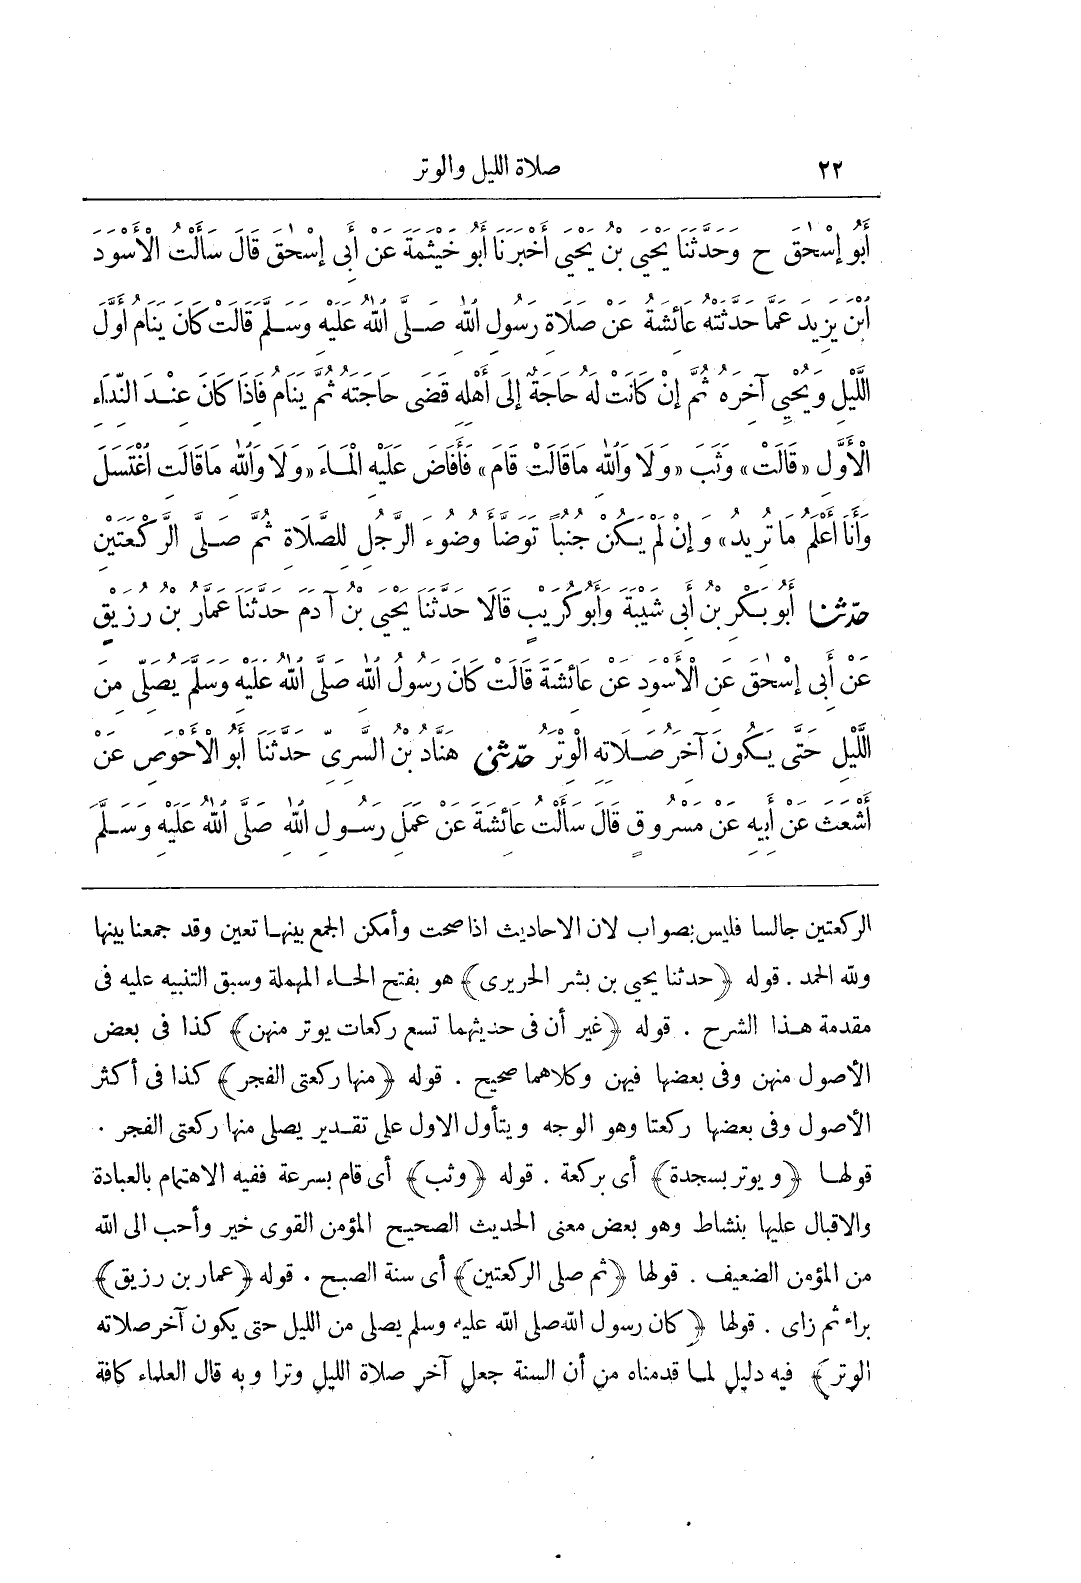 ٢٢ صلاة الليل والوتر
أَبُو إِسْحٰقَ ح وَحَدَّثَنَا يَحْيَى بْنُ يَحْيَى أَخْبَرَنَا أَبُو خَيْثَمَةَ عَنْ أَبِى إِسْحٰقَ قَالَ سَأَلْتُ الْأَسْوَدَ
ابْنَ يَزِيدَ عَمَّا حَدَّثَتْهُ عَائِشَةُ عَنْ صَلَاةِ رَسُولِ اللّٰهِ صَلَّى اللّٰهُ عَلَيْهِ وَسَلَّمَ قَالَتْ كَانَ يَنَامُ أَوَّلَ
اللَّيْلِ وَيُحْيِى آخِرَهُ ثُمَّ إِنْ كَانَتْ لَهُ حَاجَةٌ إِلَى أَهْلِهِ قَضَى حَاجَتَهُ ثُمَّ يَنَامُ فَاذَا كَانَ عِنْدَ النِّدَاءِ
الْأَوَّلِ «قَالَتْ» وَثَبَ «وَلَا وَاللّٰهِ مَاقَالَتْ قَامَ» فَأَفَاضَ عَلَيْهِ الْمَاءَ «وَلَا وَاللّٰهِ مَاقَالَتِ اغْتَسَلَ
وَأَنَا أَعْلَمُ مَا تُرِيدُ» وَإِنْ لَمْ يَكُنْ جُنُباً تَوَضَّأَ وُضُوءَ الرَّجُلِ لِلصَّلَاةِ ثُمَّ صَلَّى الرَّكْعَتَيْنِ
حدّثنا أَبُو بَكْرِ بْنُ أَبِى شَيْبَةَ وَأَبُو كُرَيْبٍ قَالَا حَدَّثَنَا يَحْيَى بْنُ آدَمَ حَدَّثَنَا عَمَّارُ بْنُ رُزَيْقٍ
عَنْ أَبِى إِسْحٰقَ عَنِ الْأَسْوَدِ عَنْ عَائِشَةَ قَالَتْ كَانَ رَسُولُ اللّٰهِ صَلَّى اللّٰهُ عَلَيْهِ وَسَلَّمَ يُصَلِّى مِنَ
اللَّيْلِ حَتَّى يَكُونَ آخِرَ صَلَاتِهِ الْوِتْرُ حدّثنى هَنَّادُ بْنُ السَّرِىِّ حَدَّثَنَا أَبُو الْأَحْوَصِ عَنْ
أَشْعَثَ عَنْ أَبِيهِ عَنْ مَسْرُوقٍ قَالَ سَأَلْتُ عَائِشَةَ عَنْ عَمَلِ رَسُولِ اللّٰهِ صَلَّى اللّٰهُ عَلَيْهِ وَسَلَّمَ
الركعتين جالسا فليس بصواب لان الاحاديث اذا صحت وأمكن الجمع بينها تعين وقد جمعنا بينها
ولله الحمد . قوله ﴿حدثنا يحيى بن بشر الحريرى﴾ هو بفتح الحاء المهملة وسبق التنبيه عليه فى
مقدمة هذا الشرح . قوله ﴿غير أن فى حديثهما تسع ركعات يوتر منهن﴾ كذا فى بعض
الأصول منهن وفى بعضها فيهن وكلاهما صحيح . قوله ﴿منها ركعتى الفجر﴾ كذا فى أكثر
الأصول وفى بعضها ركعتا وهو الوجه ويتأول الاول على تقدير يصلى منها ركعتى الفجر .
قولها ﴿ويوتر بسجدة﴾ أى بركعة . قوله ﴿وثب﴾ أى قام بسرعة ففيه الاهتمام بالعبادة
والاقبال عليها بنشاط وهو بعض معنى الحديث الصحيح المؤمن القوى خير وأحب الى الله
من المؤمن الضعيف . قولها ﴿ثم صلى الركعتين﴾ أى سنة الصبح . قوله ﴿عمار بن رزيق﴾
براء ثم زاى . قولها ﴿كان رسول الله صلى الله عليه وسلم يصلى من الليل حتى يكون آخر صلاته
الوتر﴾ فيه دليل لما قدمناه من أن السنة جعل آخر صلاة الليل وترا وبه قال العلماء كافة